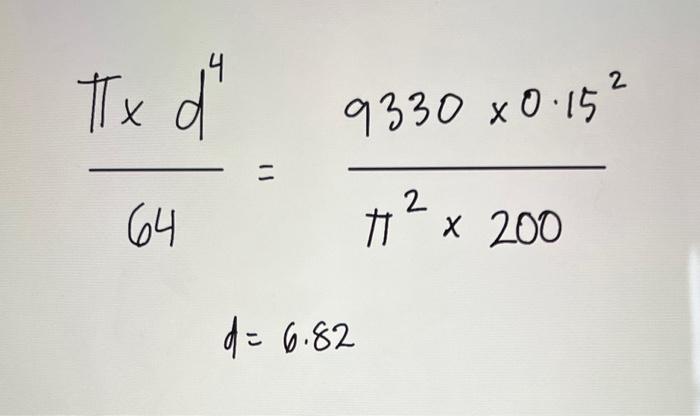 π x d⁴ / 64 = 9330 x 0.15² / π² x 200
d = 6.82